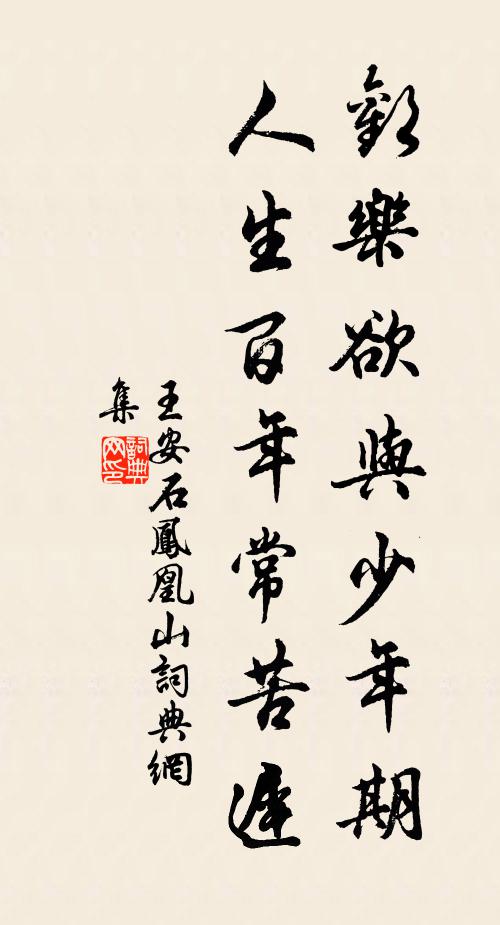 歡樂欲與少年期
人生百年常苦遲
王安石鳳凰山詞典網
集
詞典
网印